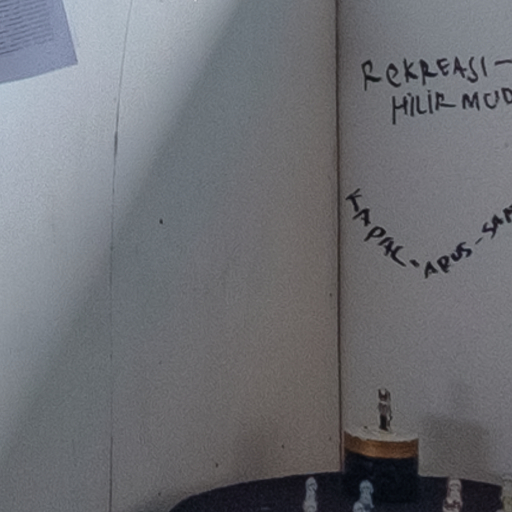 REKREASI -
HILIR MUD
KAPAL - ARUS - SAM